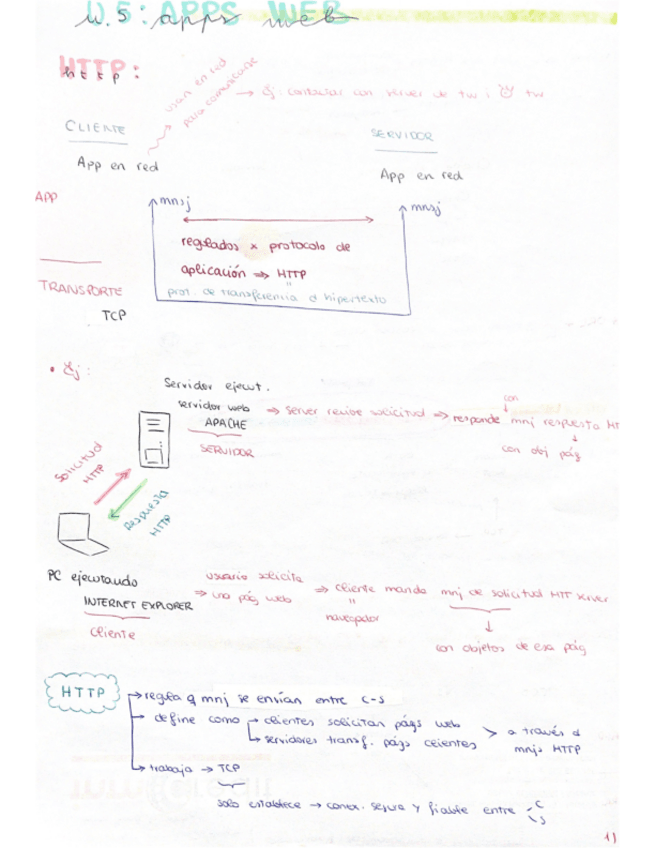 U.5: APPS WEB
apps web
HTTP:
http
usan en red
para comunicarse
→ Ej: contactar con server de tw i tw
CLIENTE
SERVIDOR
App en red
App en red
APP
mnsj
mnsj
regulados x protocolo de
aplicación ⇒ HTTP
"
prot. de transferencia d hipertexto
TRANSPORTE
TCP
• Ej:
Servidor ejecut.
servidor web
APACHE
SERVIDOR
⇒ Server recibe solicitud ⇒ responde mnj respuesta HT
con
con obj pág
Solicitud
HTTP
Respuesta
HTTP
PC ejecutando
INTERNET EXPLORER
cliente
usuario solicita
⇒ una pág web
⇒ cliente manda mnj de solicitud HTT xserver
"
navegador
con objetos de esa pág
HTTP
→ regula q mnj se envían entre C-S
→ define como → clientes solicitan págs web
→ servidores transf. págs clientes
> a través d
mnjs HTTP
→ trabaja → TCP
solo establece → conex. segura y fiable entre C
S
1)